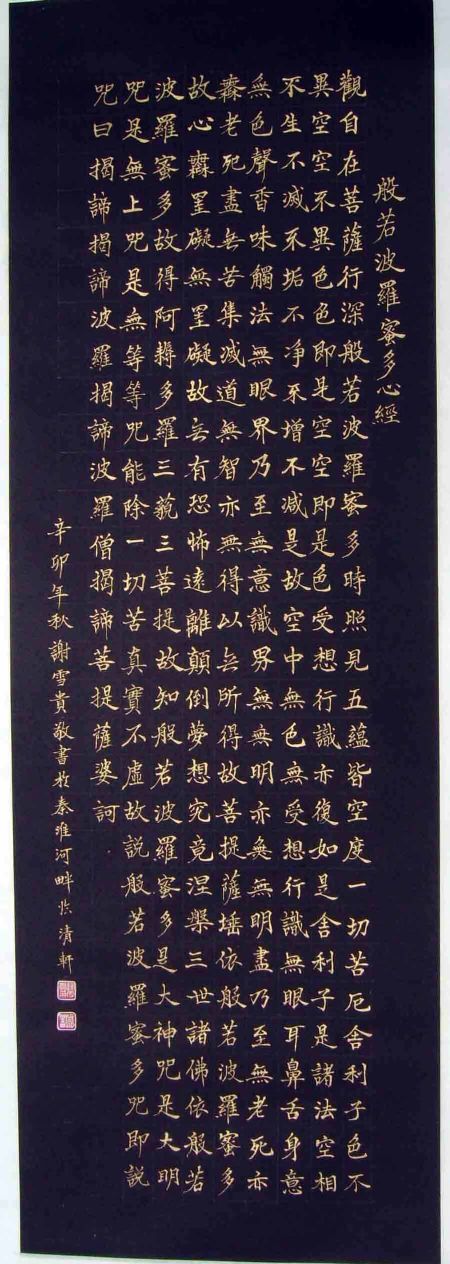 般若波羅蜜多心經
觀自在菩薩行深般若波羅蜜多時照見五蘊皆空度一切苦厄舍利子色不
異空空不異色色即是空空即是色受想行識亦復如是舍利子是諸法空相
不生不滅不垢不净不增不減是故空中無色無受想行識無眼耳鼻舌身意
無色聲香味觸法無眼界乃至無意識界無無明亦無無明盡乃至無老死亦
無老死盡无苦集滅道無智亦無得以无所得故菩提薩埵依般若波羅蜜多
故心無罣礙無罣礙故无有恐怖遠離顛倒夢想究竟涅槃三世諸佛依般若
波羅蜜多故得阿耨多羅三藐三菩提故知般若波羅蜜多是大神咒是大明
咒是無上咒是無等等咒能除一切苦真實不虛故説般若波羅蜜多咒即説
咒曰揭諦揭諦波羅揭諦波羅僧揭諦菩提薩婆訶
辛卯年秋謝雪貴敬書於秦淮河畔清軒